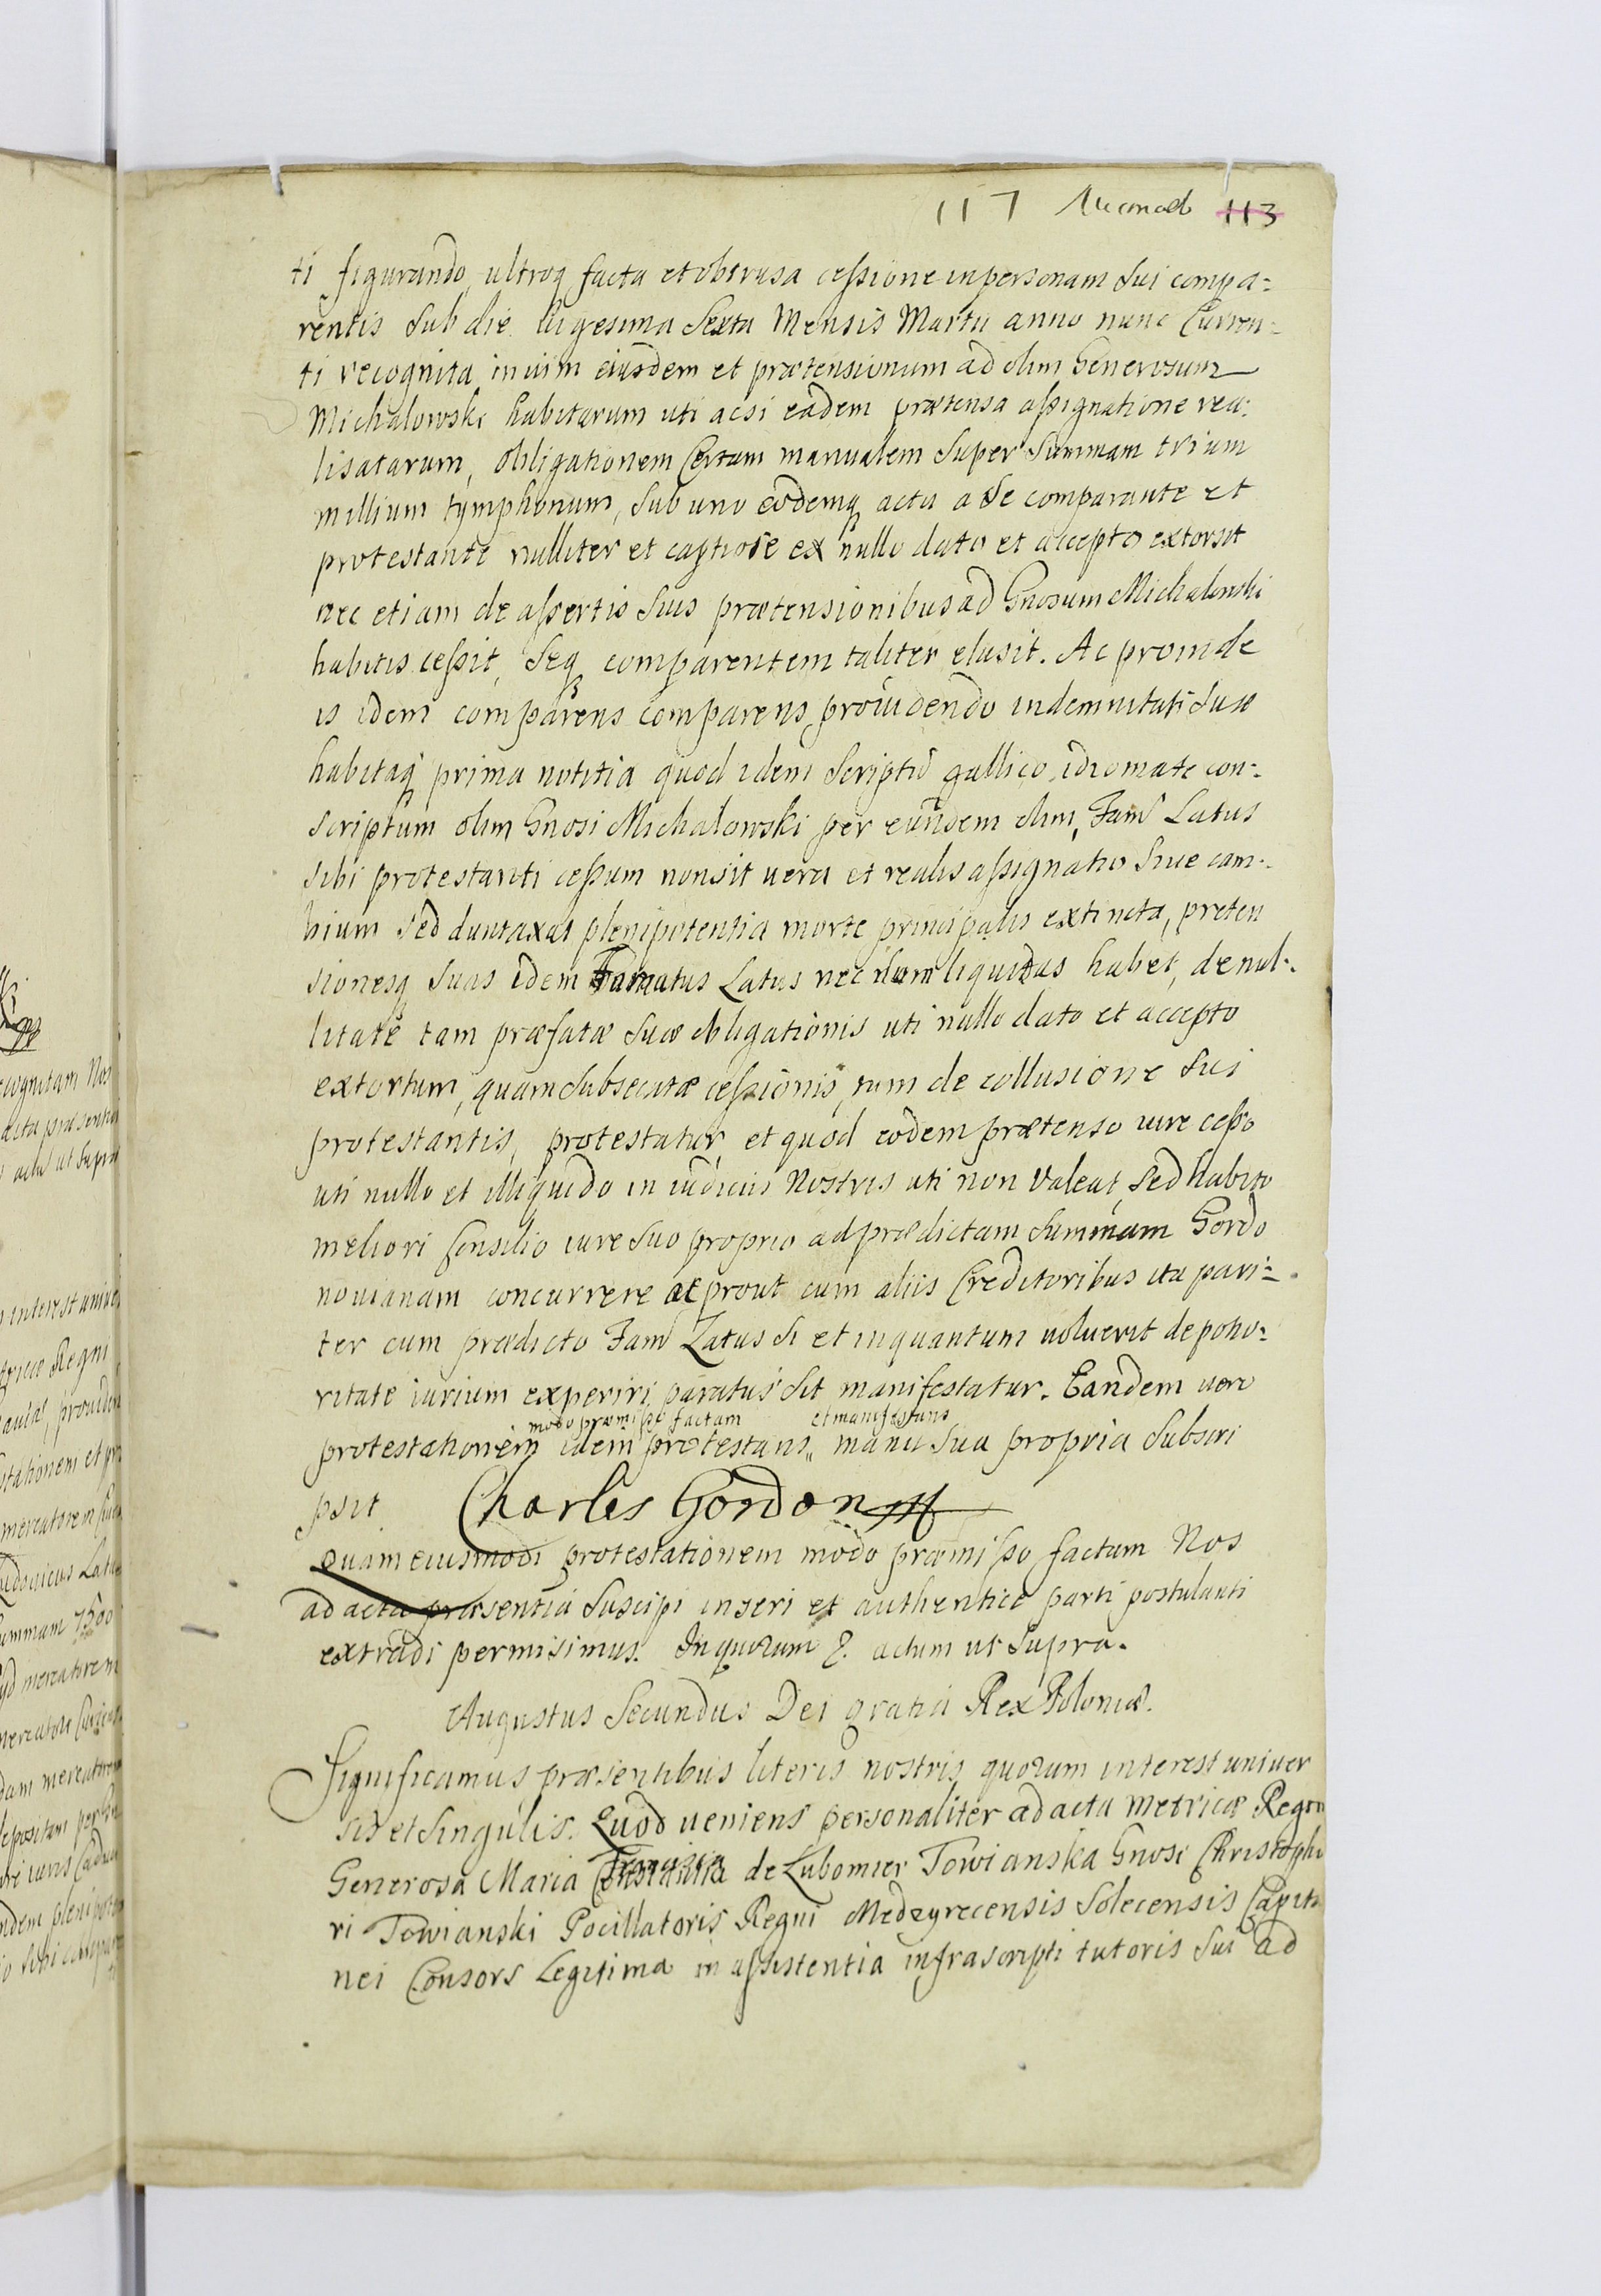 117 113
ti figurando, ultroq facta et obtrusa cessione in personam sui compa=
rentis sub die Vigesima Sexta Mensis Martii anno nunc Curren=
ti recognita, in vim eiusdem et prætensionum ad olim Generosum
Michalowski habitarum uti acsi eadem prætensa assignatione rea=
lisatarum, obligationem Certam manualem super summam trium
millium tymphonum, sub uno eodemq actu a se comparante et
protestante nulliter et captiose ex nullo dato et accepto extorsit
nec etiam de assertis suis prætensionibus ad Gnosum Michalowski
habitis cessit, seq comparentem taliter elusit. Ac proinde
is idem comparens comparens, providendo indemnitati suæ
habitaq prima notitia quod idem Scriptū gallico idiomate con=
scriptum olim Gnosi Michalowski per eundem olim, Fam Latus
sibi protestanti cessum non sit vera et realis assignatio sive cam=
bium sed duntaxat plenipotentia morte principalis extincta, preten
sionesq suas idem Famatus Latus nec dum liquidas habet, de nul=
litate tam præfatæ suæ obligationis uti nullo dato et accepto
extortum, quam subsecutæ cessionis, tum de collusione sui
protestantis, protestatur, et quod eodem prætenso iure cesso
uti nullo et illiquido in iudiciis Nostris uti non valeat, sed habito
meliori Consilio iure suo proprio ad prædictam summam Gordo
novianam concurrere ac prout cum aliis Creditoribus ita pari=
ter cum prædicto Fam Latus si et inquantum voluerit de potio=
ritate iurium experiri paratus sit manifestatur. Eandem vero
modo præmisso factam et manifestans
protestationem idem protestans, manu sua propria subscri
psit Charles Gordon
Quam eiusmodi protestationem modo præmisso factam Nos
ad acta præsentia suscipi inseri et authentice parti postulanti
extradi permisimus. In quorum &. actum ut supra.
Augustus Secundus Dei gratia Rex Poloniæ.
Significamus præsentibus literis nostris quorum interest univer
sis et singulis. Quod veniens personaliter ad acta Metricæ Regni
Francisca
Generosa Maria Constantia de Lubomier Towianska Gnosi Christopho
ri Towianski Pocillatoris Regni Medzyrecensis Solecensis Capita
nei Consors Legitima in assistentia infrascripti tutoris sui ad